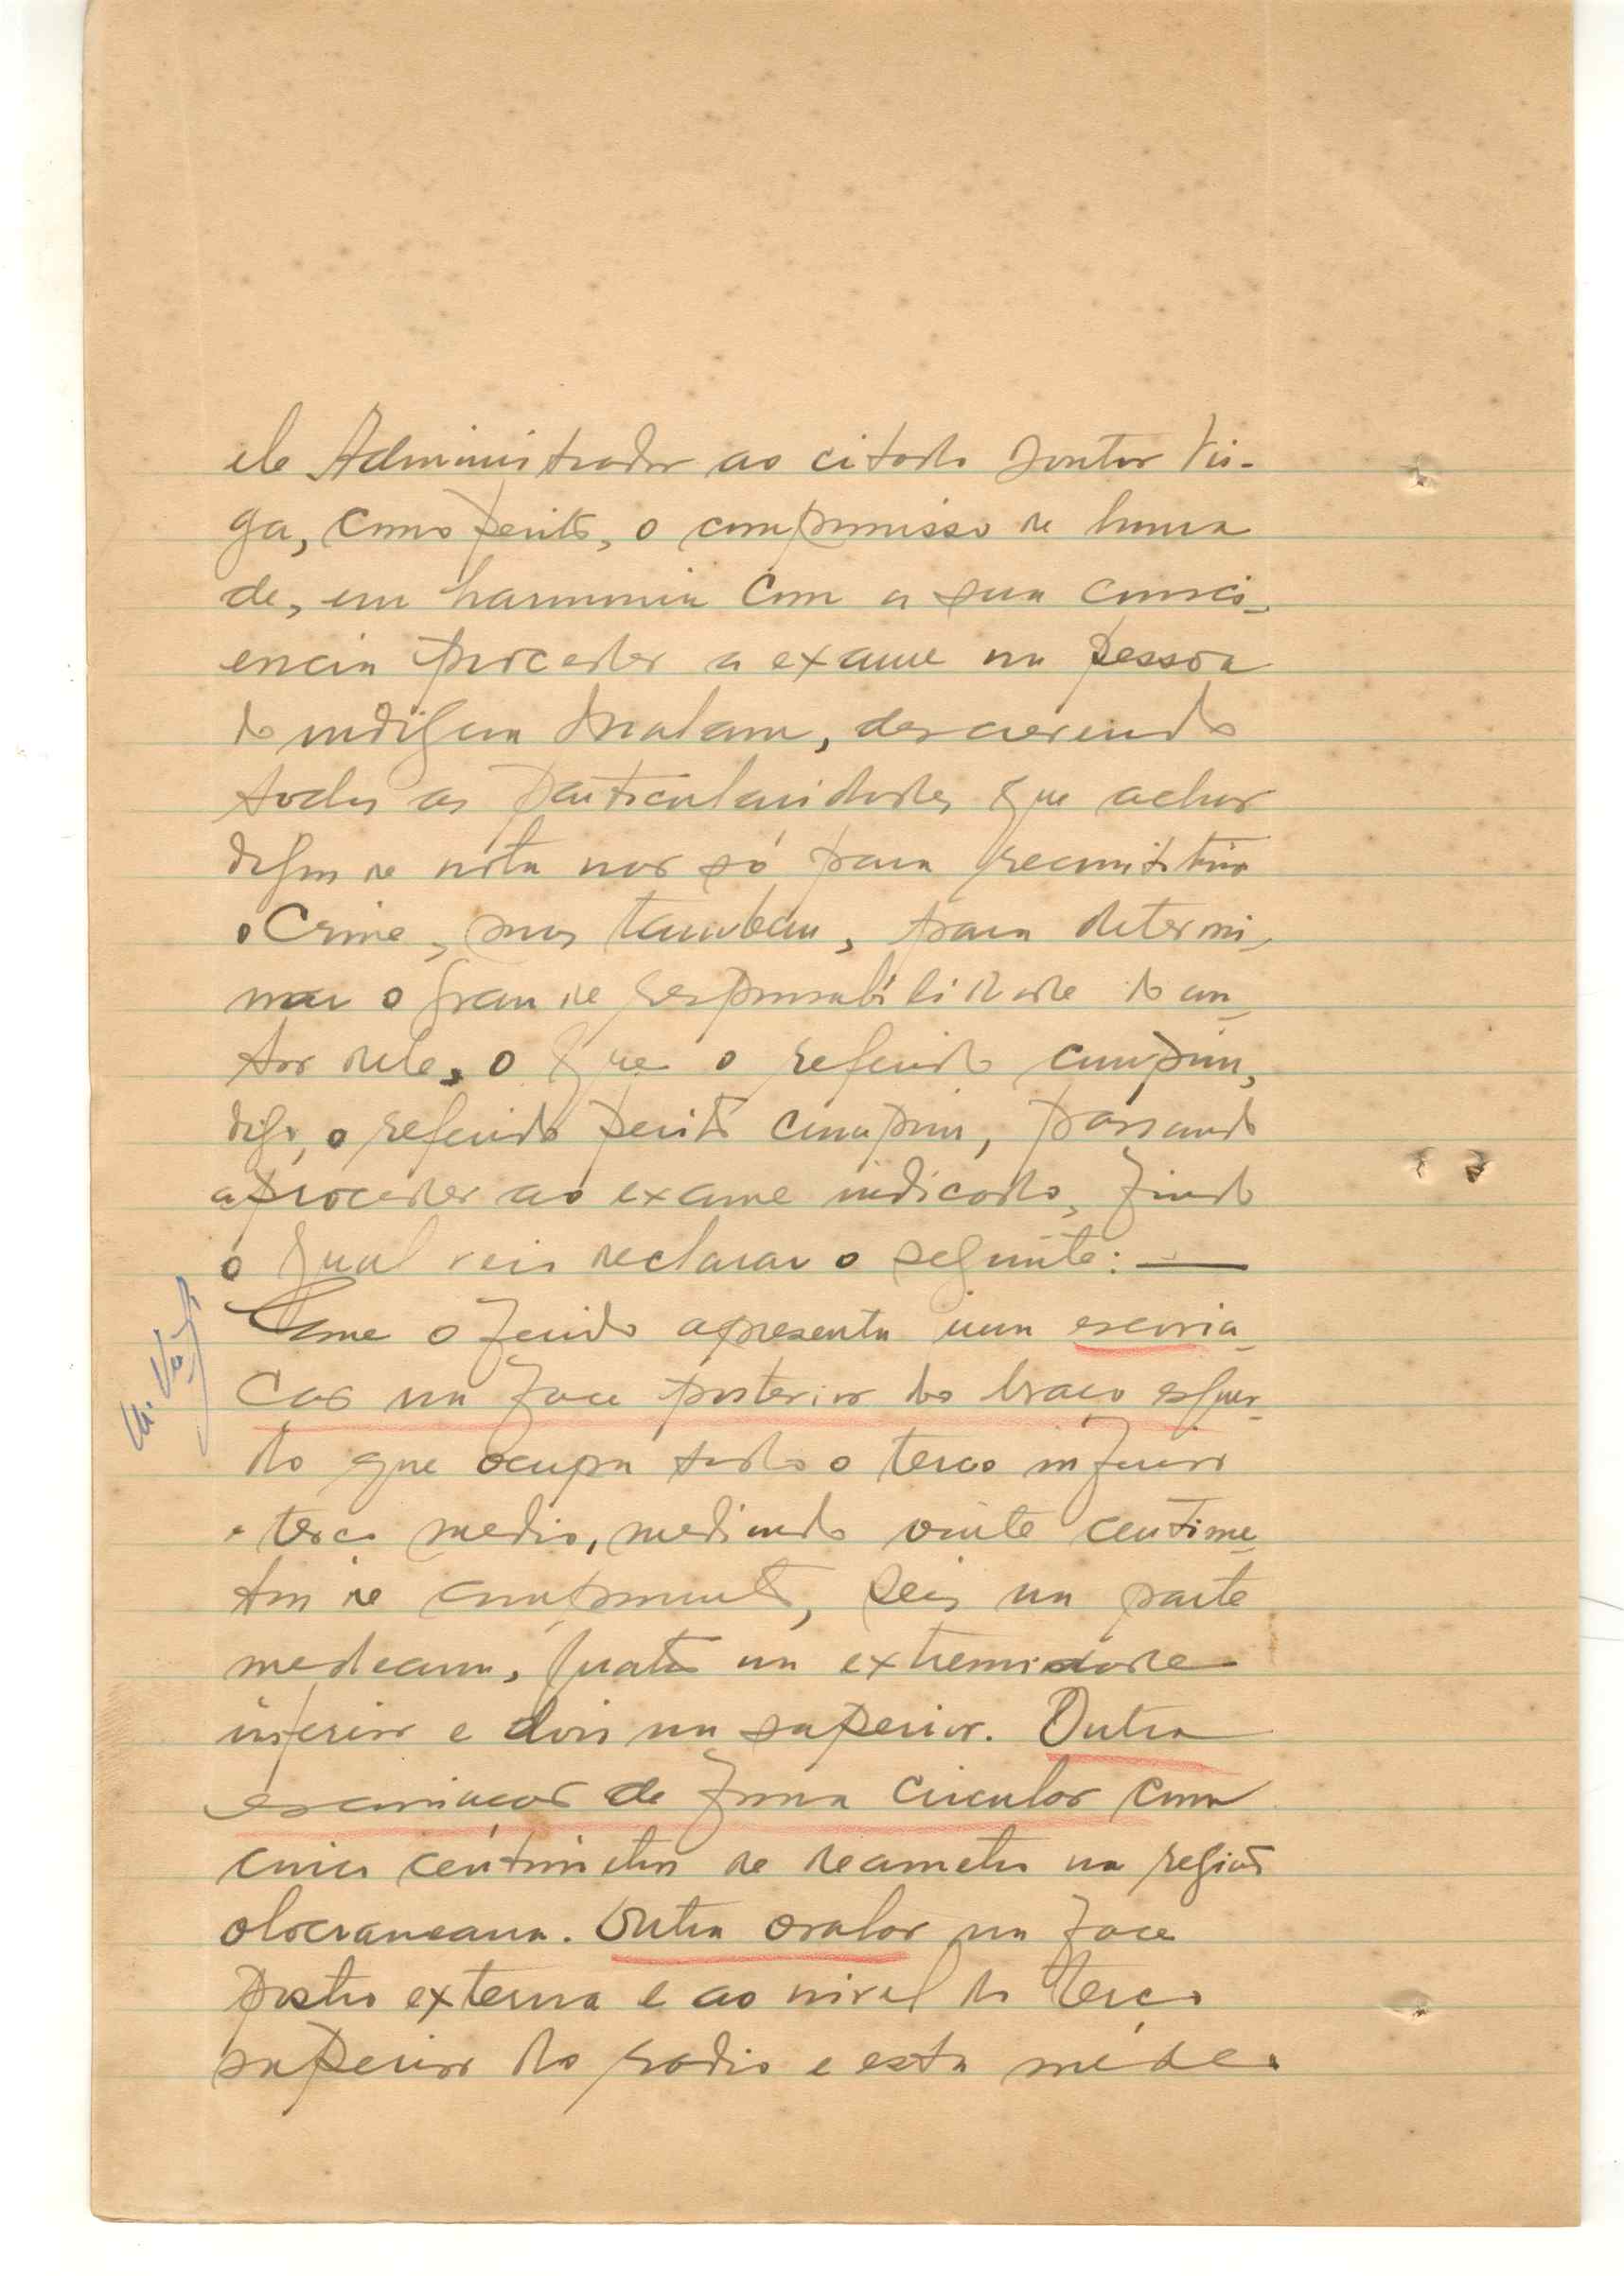 ele Administrador ao citado Doutor Vei-
ga, como perito, o compromisso de honra
de, em harmonia com a sua consci-
encia proceder a exame na pessoa
do indigena descrevendo
todas as particularidades que achar
digna de nota não só para reconstituir
o Crime, mas tambem, para determi-
nar o grau de responsabilidade do au-
tor dele, o que o referido cumpriu,
digo, o referido perito cumpriu, passando
a proceder ao exame indicado, findo
o qual veio declarar o seguinte: —
Que o ferido apresenta uma escoria-
ção na face posterior do braço esquer-
do que ocupa todo o terço inferior
e terço medio, medindo vinte centime-
tros de comprimento, seis na parte
mediana, quatro na extremidade
inferior e dois na superior. Outra
escoriação de forma circular com
cinco centimetros de deametro na região
olocraneana. Outra ovalar na face
postro externa e ao nivel do terço
superior do radio e esta méde